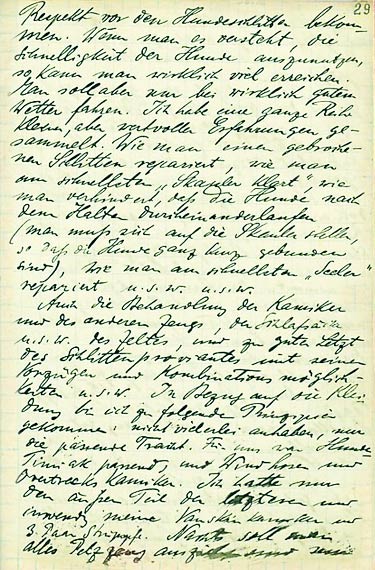 29
Respekt vor den Hundeschlitten bekom-
men. Wenn man es versteht, die
Schnelligkeit der Hunde auszunutzen,
so kann man wirklich viel erreichen.
Man soll aber nur bei wirklich gutem
Wetter fahren. Ich habe eine ganze Reihe
kleiner, aber wertvoller Erfahrungen ge-
sammelt. Wie man einen gebroche-
nen Schlitten repariert, wie man
am schnellsten „Skagler klart", wie
man verhindert, daß die Hunde nach
dem Halten durcheinanderlaufen
(man muß sich auf die Skeuler stellen,
so daß die Hunde ganz kurz gebunden
sind), wie man am schnellsten „Seelen"
repariert u.s.w. u.s.w.
Auch die Behandlung der Kamiker
und des anderen Zeugs, der Schlafsäcke
u.s.w. des Zeltes, und zu guter Letzt
des Schlittenproviantes mit seinen
Vorzügen und Kombinationsmöglich-
keiten u.s.w. In Bezug auf die Klei-
dung bin ich zu folgende Prinzipien
gekommen: nicht vielerlei anhaben, nur
die passende Tracht. Für uns war Hunde-
Timiak passend, und Windhosen und
Overtreks Kamiker. Ich hatte nur
den äußren Teil der letzteren und
inwendig meine Kamiker und
3 Paar Strümpfe. Nachts soll man
alles Pelzzeug ausziehen und